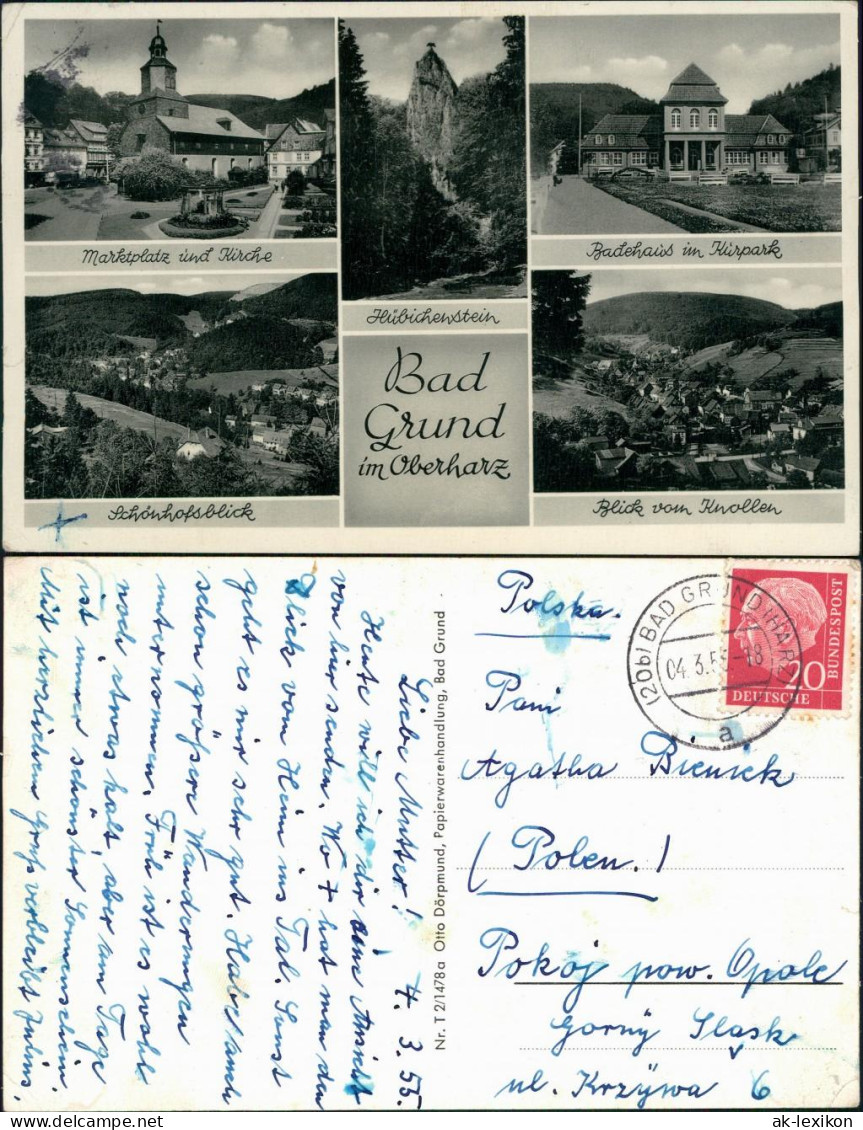 Marktplatz und Kirche
Hübichenstein
Badehaus im Kurpark
Bad
Grund
im Oberharz
Schönhofsblick
Blick vom Knollen
4. 3. 55.
Liebe Mutter!
Heute will ich dir eine Ansicht
von hier senden. Wo + hat man den
Blick vom Heim ins Tal. Sonst
geht es mir sehr gut. Habe auch
schon größere Wanderungen
unternommen. Früh ist es wohl
noch etwas kalt, aber am Tage
ist immer schönster Sonnenschein.
Mit herzlichem Gruß verbleibt Julius.
Nr. T 2/1478a Otto Dörpmund, Papierwarenhandlung, Bad Grund
(20b) BAD GRUND (HARZ)
04.3.55-18
a
20
DEUTSCHE
BUNDESPOST
Polska.
Pani
Agatha Bieniek
(Polen.)
Pokój pow. Opole
Gorny Sląsk
ul. Krzywa 6
ak-lexikon